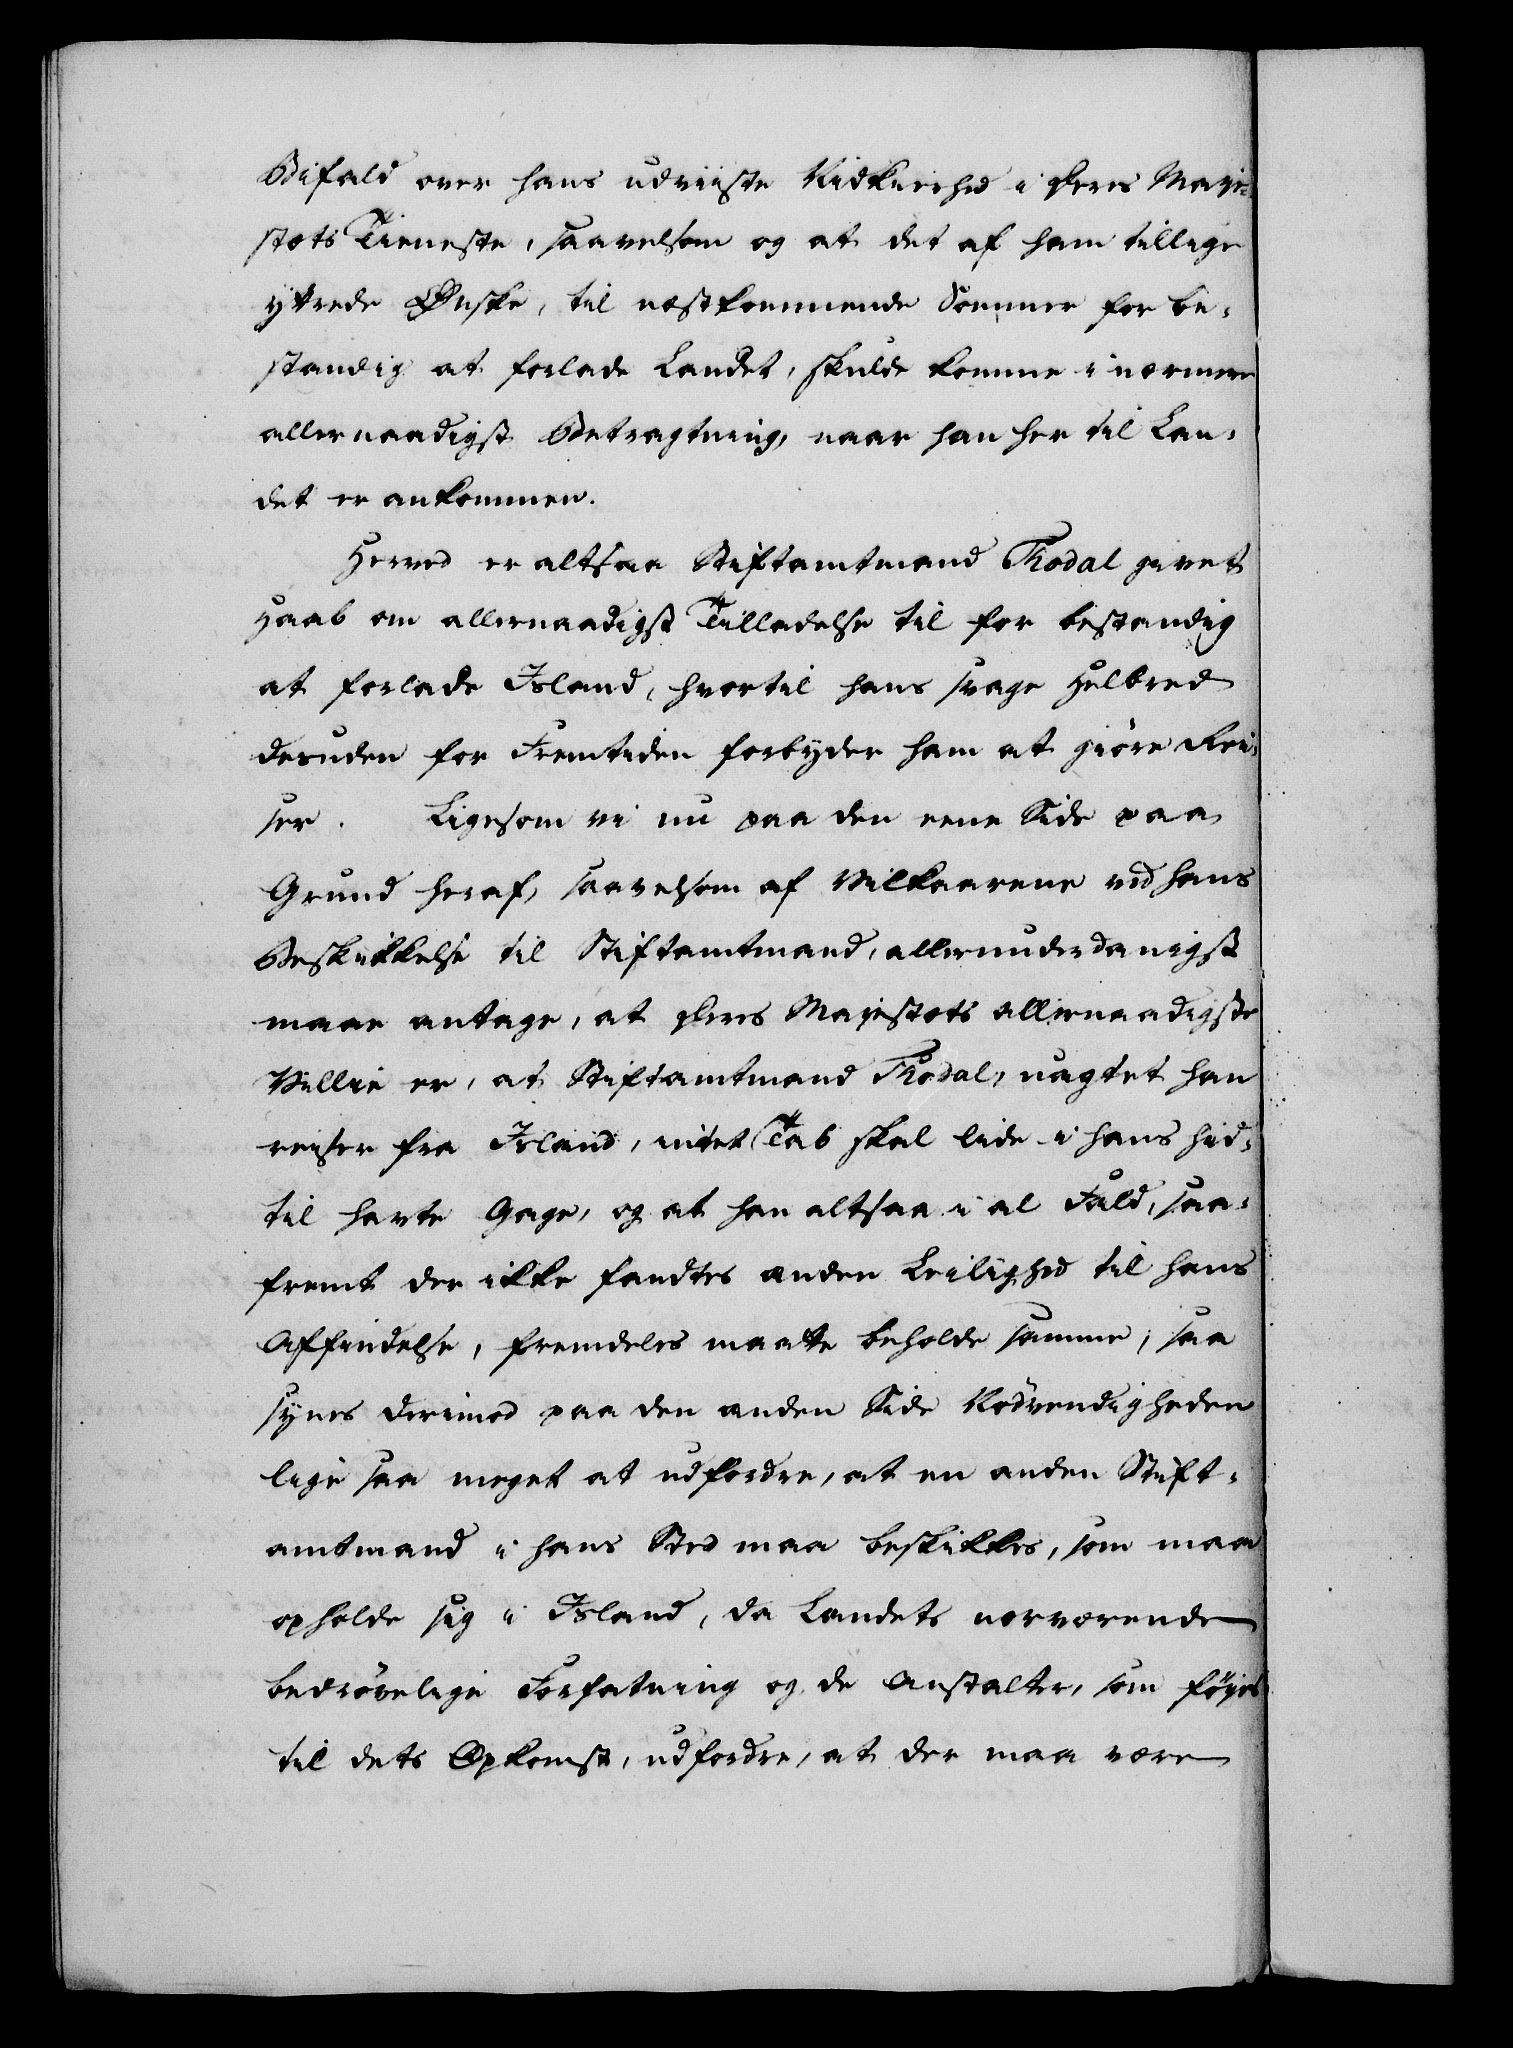 Bifald over hans udviiste Nidkierhed i Deres Maje-
stæts Tieneste, saavelsom og at det af ham tillige
yttrede Ønske, til næstkommende Sommer for be-
standig at forlade Landet, skulde komme i nærmere
allernaadigst Betragtning, naar han her til Lan-
det er ankommen.
Herved er altsaa Stiftamtmand Thodal givet
Haab om allernaadigst Tilladelse til for bestandig
at forlade Island, hvortil hans svage Helbred
desuden for Fremtiden forbyder ham at giöre Rei-
ser. Ligesom vi nu paa den eene Side paa
Grund heraf, saavelsom af Vilkaarene ved hans
Beskikkelse til Stiftamtmand, allerunderdanigst
maae antage, at Deres Majestæts allernaadigste
Villie er, at Stiftamtmand Thodal, uagtet han
reiser fra Island, intet Tab skal lide i hans hid-
til havte Gage, og at han altsaa i al Fald, saa-
fremt der ikke fandtes anden Leilighed til hans
Affindelse, fremdeles maatte beholde samme; saa
synes derimod paa den anden Side Nödvendigheden
lige saa meget at udfordre, at en anden Stift-
amtmand i hans Sted maa beskikkes, som maa
opholde sig i Island, da Landets nærværende
bedrövelige Forfatning og de Anstalter, som föyes
til dets Opkomst, udfordre, at der maa være